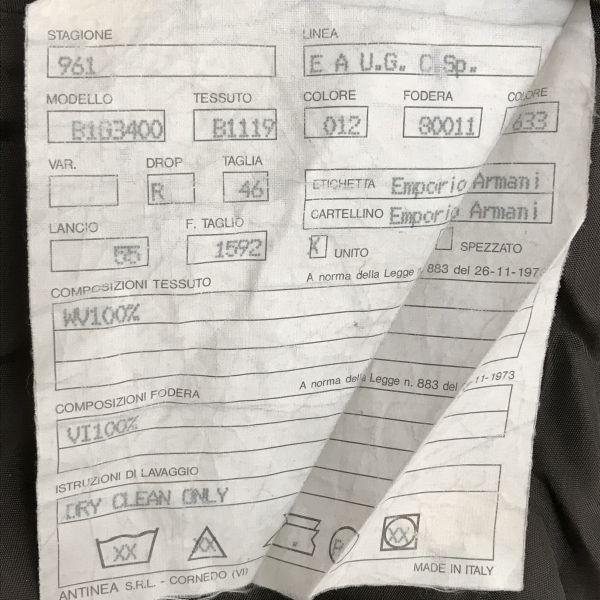 STAGIONE LINEA
961 E A U.G. C Sp.
MODELLO TESSUTO COLORE FODERA COLORE
B1G3400 B1119 012 80011 633
VAR. DROP TAGLIA
R 46
ETICHETTA Emporio Armani
CARTELLINO Emporio Armani
LANCIO F. TAGLIO
55 1592
X UNITO SPEZZATO
COMPOSIZIONI TESSUTO A norma della Legge n. 883 del 26-11-197
WV100%
COMPOSIZIONI FODERA A norma della Legge n. 883 del 11-1973
VI100%
ISTRUZIONI DI LAVAGGIO
DRY CLEAN ONLY
XX XX P XX
ANTINEA S.R.L. - CORNEDO (VI) MADE IN ITALY